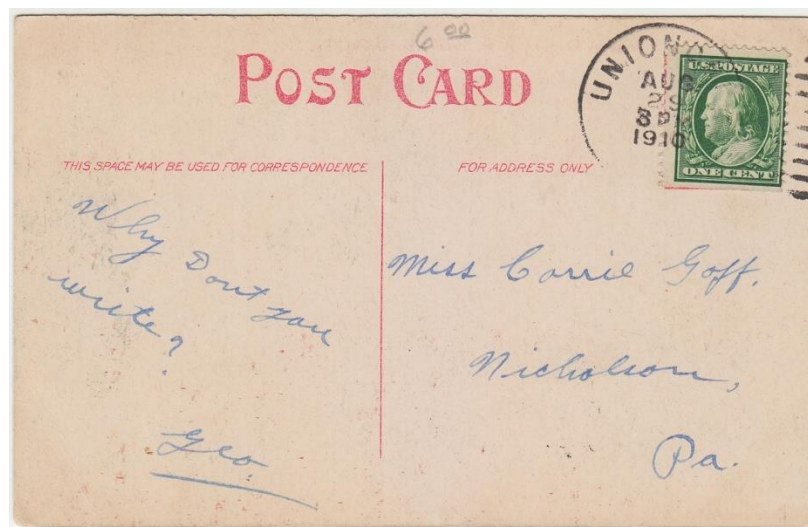 6 00
POST CARD
UNION
AUG
3 P
1910
U.S.POSTAGE
ONE CENT
THIS SPACE MAY BE USED FOR CORRESPONDENCE
FOR ADDRESS ONLY
Why Dont you
write?
Geo.
Miss Carrie Goff.
Nicholson,
Pa.